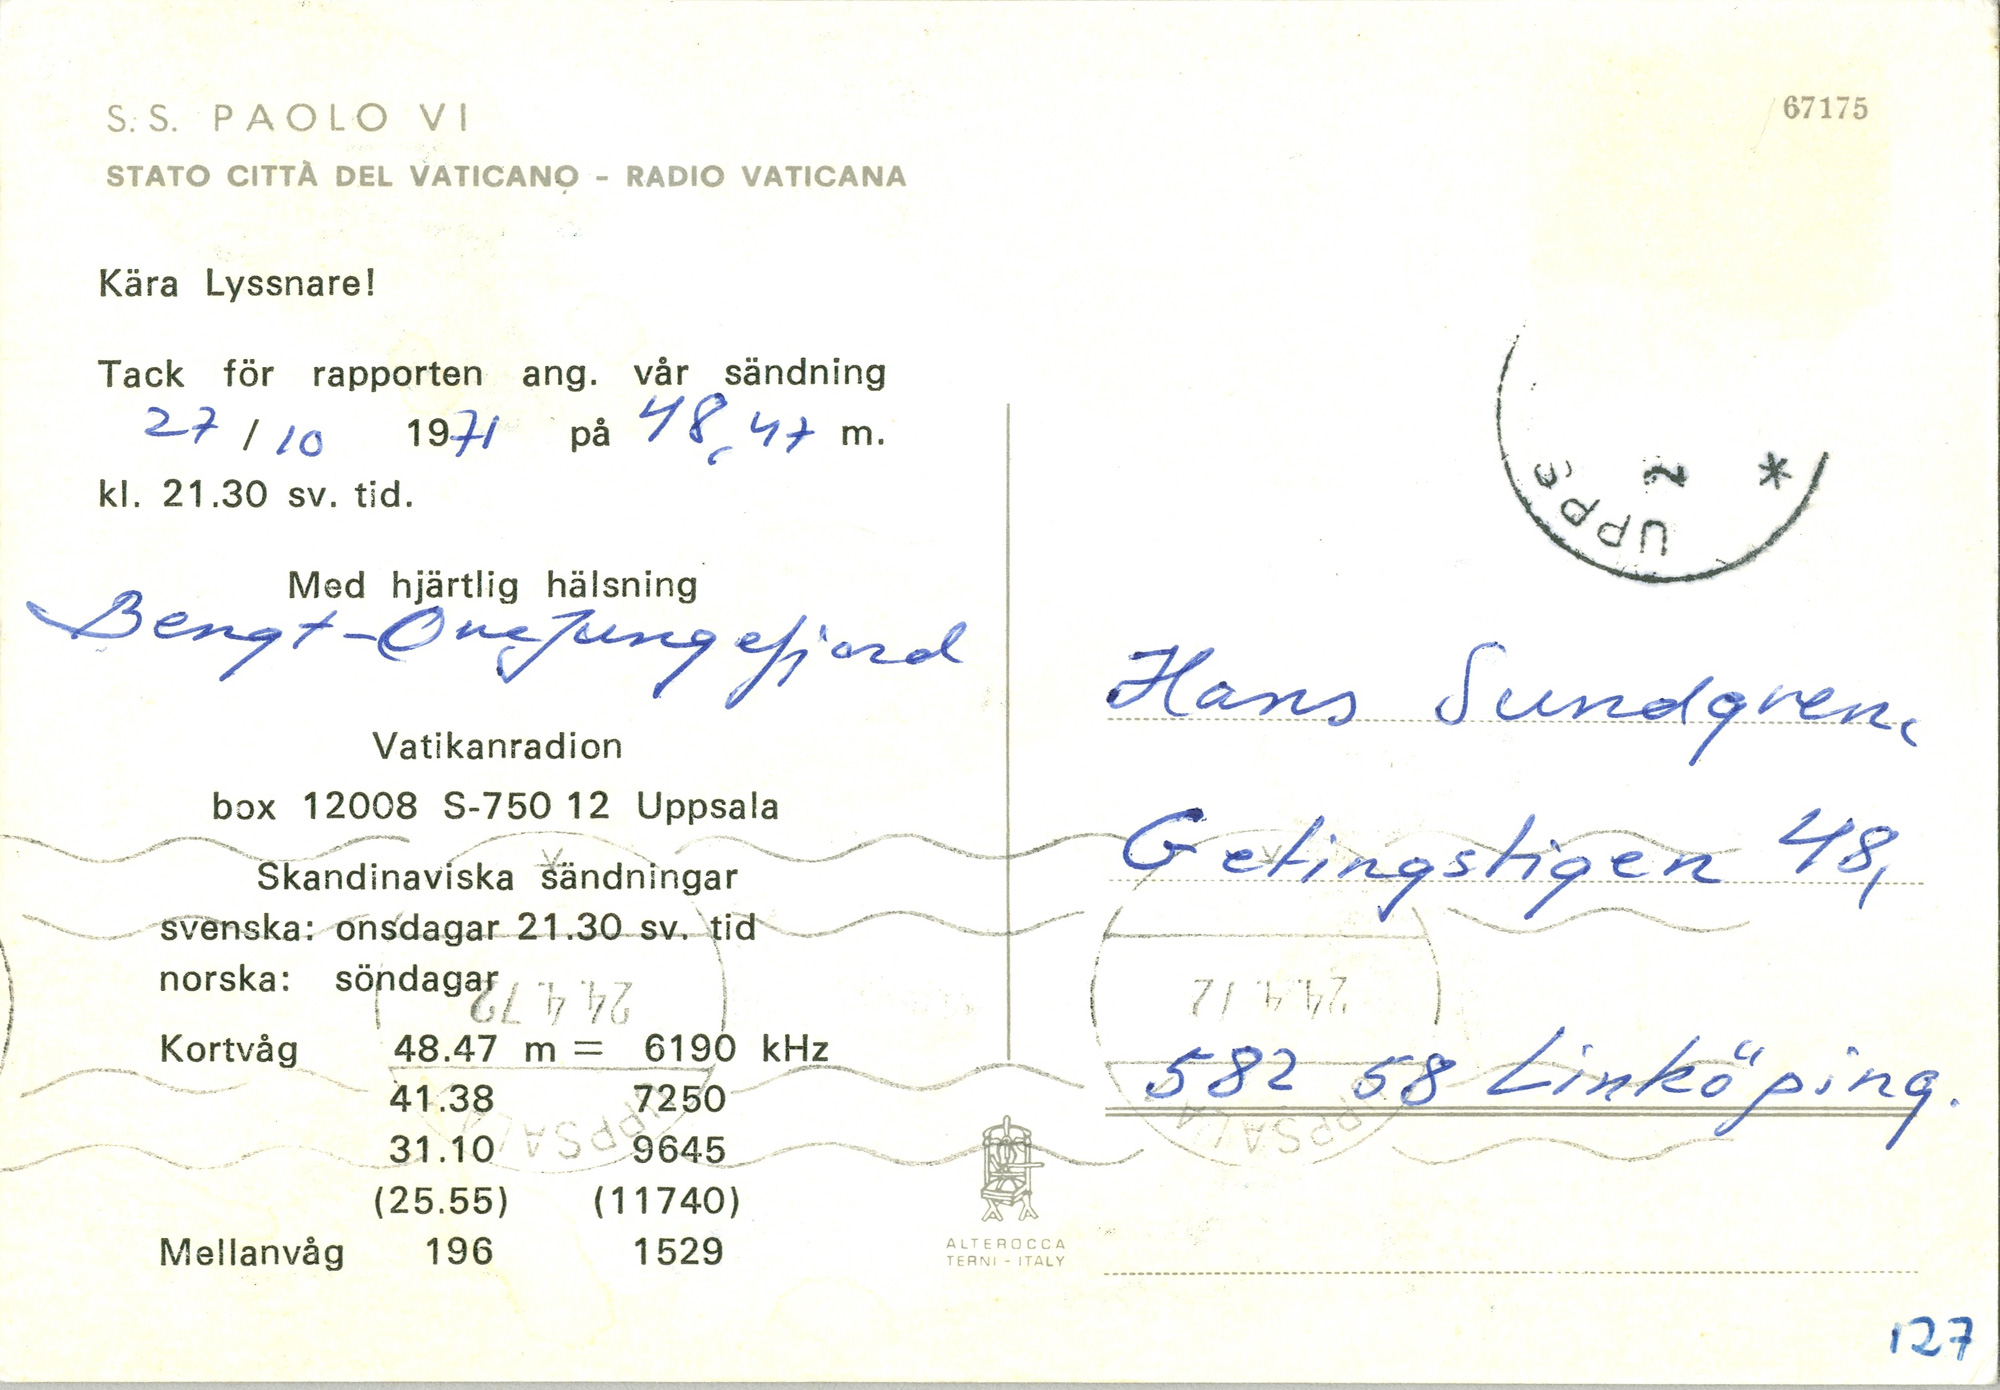 S. S. PAOLO VI
STATO CITTÀ DEL VATICANO - RADIO VATICANA
67175
Kära Lyssnare!
Tack för rapporten ang. vår sändning
27 / 10 1971 på 48,47 m.
kl. 21.30 sv. tid.
Med hjärtlig hälsning
Bengt-Ove Jungefjord
Vatikanradion
box 12008 S-750 12 Uppsala
Skandinaviska sändningar
svenska: onsdagar 21.30 sv. tid
norska: söndagar
Kortvåg 48.47 m = 6190 kHz
41.38 7250
31.10 9645
(25.55) (11740)
Mellanvåg 196 1529
Hans Sundgren,
Getingstigen 48,
582 58 Linköping.
24.4.72
UPPSALA
24.4.72
UPPSALA
ALTEROCCA
TERNI - ITALY
127